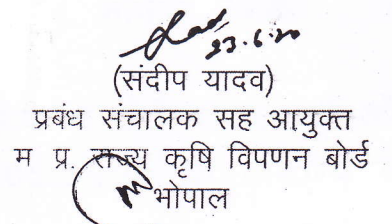 23.6.20
(संदीप यादव)
प्रबंध संचालक सह आयुक्त
म प्र. राज्य कृषि विपणन बोर्ड
भोपाल